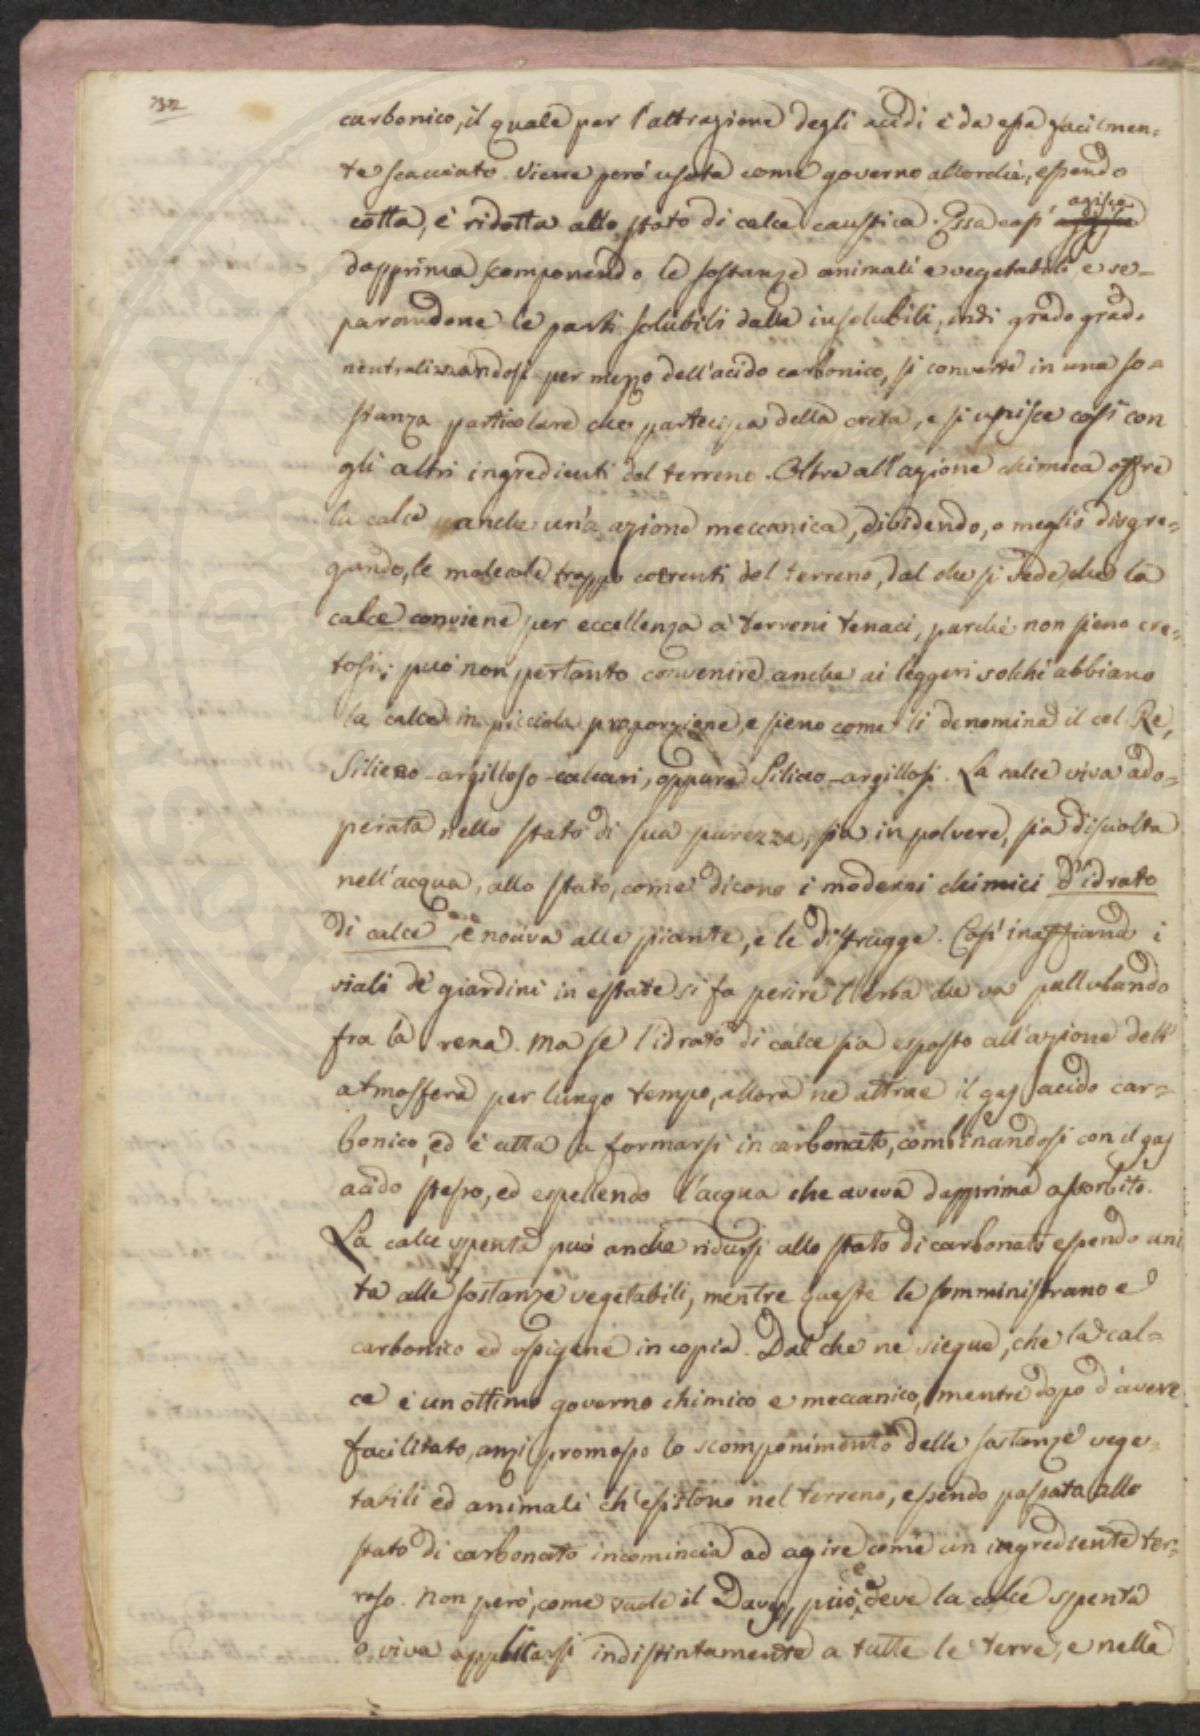 132
carbonico, il quale per l'attrazione degli acidi è da essa facilmen=
te scacciato. Viene però usata come governo allorchè, essendo
cotta, è ridotta allo stato di calce caustica. Essa così agisce
dapprima scomponendo le sostanze animali e vegetabili e se=
parandone le parti solubili dalla insolubili, indi grado grado
neutralizzandosi per mezzo dell'acido carbonico, si converte in una so=
stanza particolare che partecipa della creta, e si unisce così con
gli altri ingredienti del terreno. Oltre all'azione chimica offre
la calce anche un'a azione meccanica, dividendo, o meglio disgre=
gando, le molecole troppo coerenti del terreno, dal che si vede, che la
calce conviene per eccellenza a' terreni tenaci, purchè non sieno cre=
tosi; può non pertanto convenire anche ai leggeri solchi abbiano
la calce in picciola proporzione, e sieno come li denomina il cel. Re,
Siliceo-argilloso-calcari, oppure Siliceo-argillosi. La calce viva ado=
perata nello stato di sua purezza, sia in polvere, sia disciolta
nell'acqua, allo stato, come dicono i moderni chimici d'idrato
di calce, è nociva alle piante, e le distrugge. Così inaffiando i
viali de' giardini in estate si fa perire l'erba che va pullulando
fra la rena. Ma se l'idrato di calce sia esposto all'azione dell'
atmosfera per lungo tempo, allora ne attrae il gas acido car=
bonico, ed è atta a formarsi in carbonato, combinandosi con il gas
acido stesso, ed espellendo l'acqua che aveva dapprima assorbito.
La calce spenta può anche ridursi allo stato di carbonato essendo uni
ta alle sostanze vegetabili, mentre queste le somministrano e
carbonico ed ossigene in copia. Dal che ne siegue, che la cal=
ce è un ottimo governo chimico e meccanico, mentre dopo d'avere
facilitato, anzi promosso lo scomponimento delle sostanze vege=
tabili ed animali ch'esistono nel terreno, essendo passata allo
stato di carbonato incomincia ad agire come un ingrediente ter=
roso. Non però, come vuole il Davy, può, e deve la calce spenta
o viva applicarsi indistintamente a tutte le terre, e nella